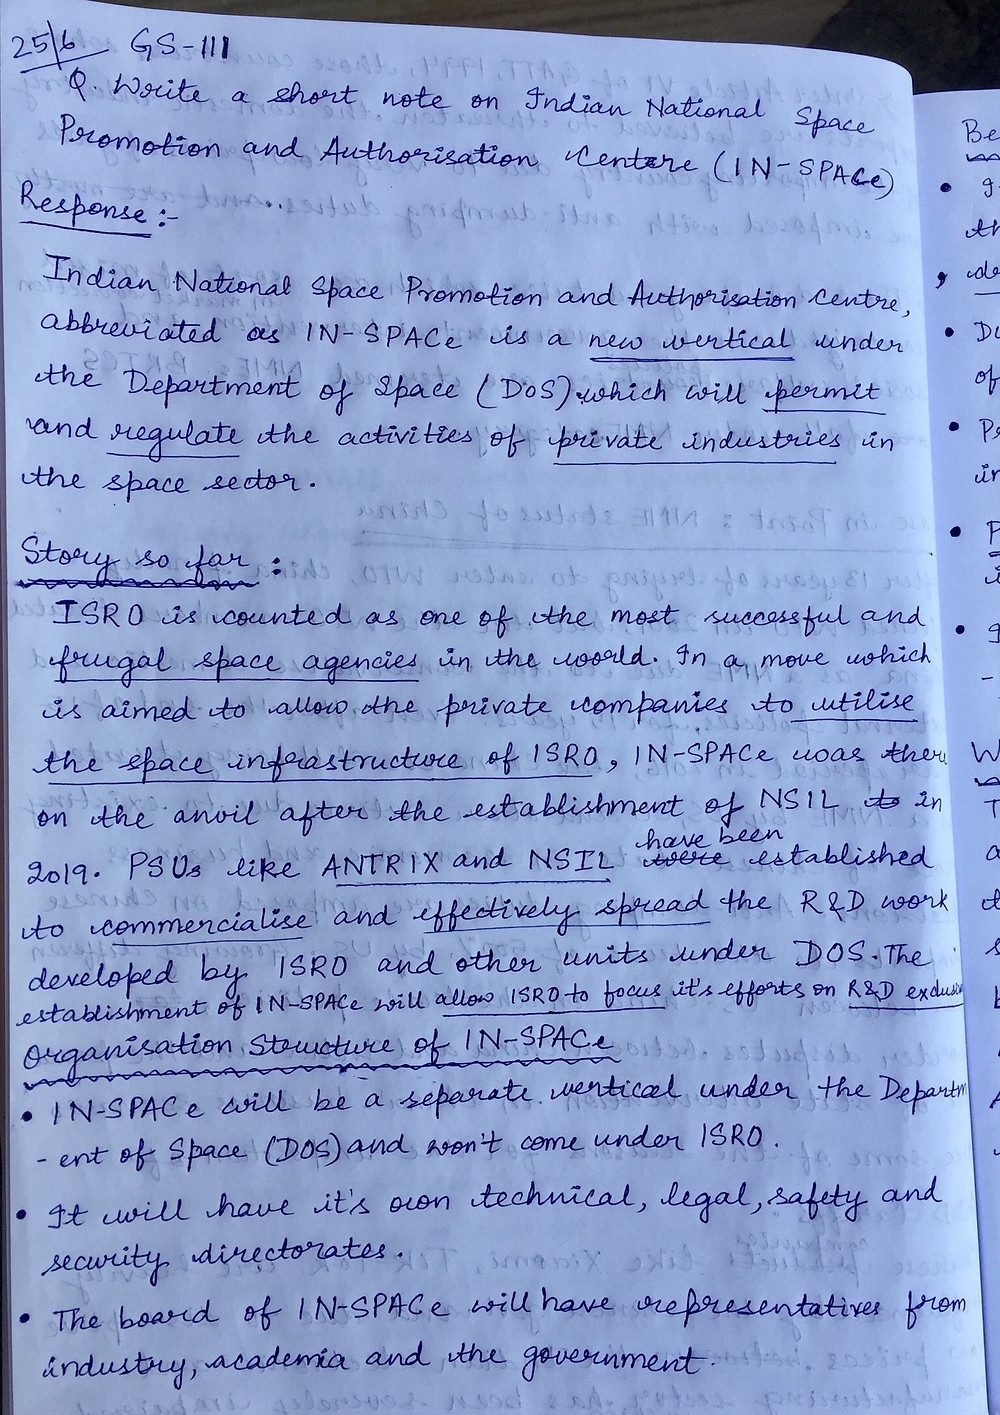 25/6 GS-III
Q. Write a short note on Indian National Space
Promotion and Authorisation Centre (IN-SPACe)
Response :-
Indian National Space Promotion and Authorisation Centre,
abbreviated as IN-SPACe is a new vertical under
the Department of Space (DoS) which will permit
and regulate the activities of private industries in
the space sector.
Story so far :
ISRO is counted as one of the most successful and
frugal space agencies in the world. In a move which
is aimed to allow the private companies to utilise
the space infrastructure of ISRO, IN-SPACe was there
on the anvil after the establishment of NSIL to in
have been
2019. PSUs like ANTRIX and NSIL were established
to commercialise and effectively spread the R&D work
developed by ISRO and other units under DOS. The
establishment of IN-SPACe will allow ISRO to focus it's efforts on R&D
Organisation Structure of IN-SPACe
• IN-SPACe will be a separate vertical under the Departm
- ent of Space (DOS) and won't come under ISRO.
• It will have it's own technical, legal, safety and
security directorates.
• The board of IN-SPACe will have representatives from
industry, academia and the government.
Be
th
of
in